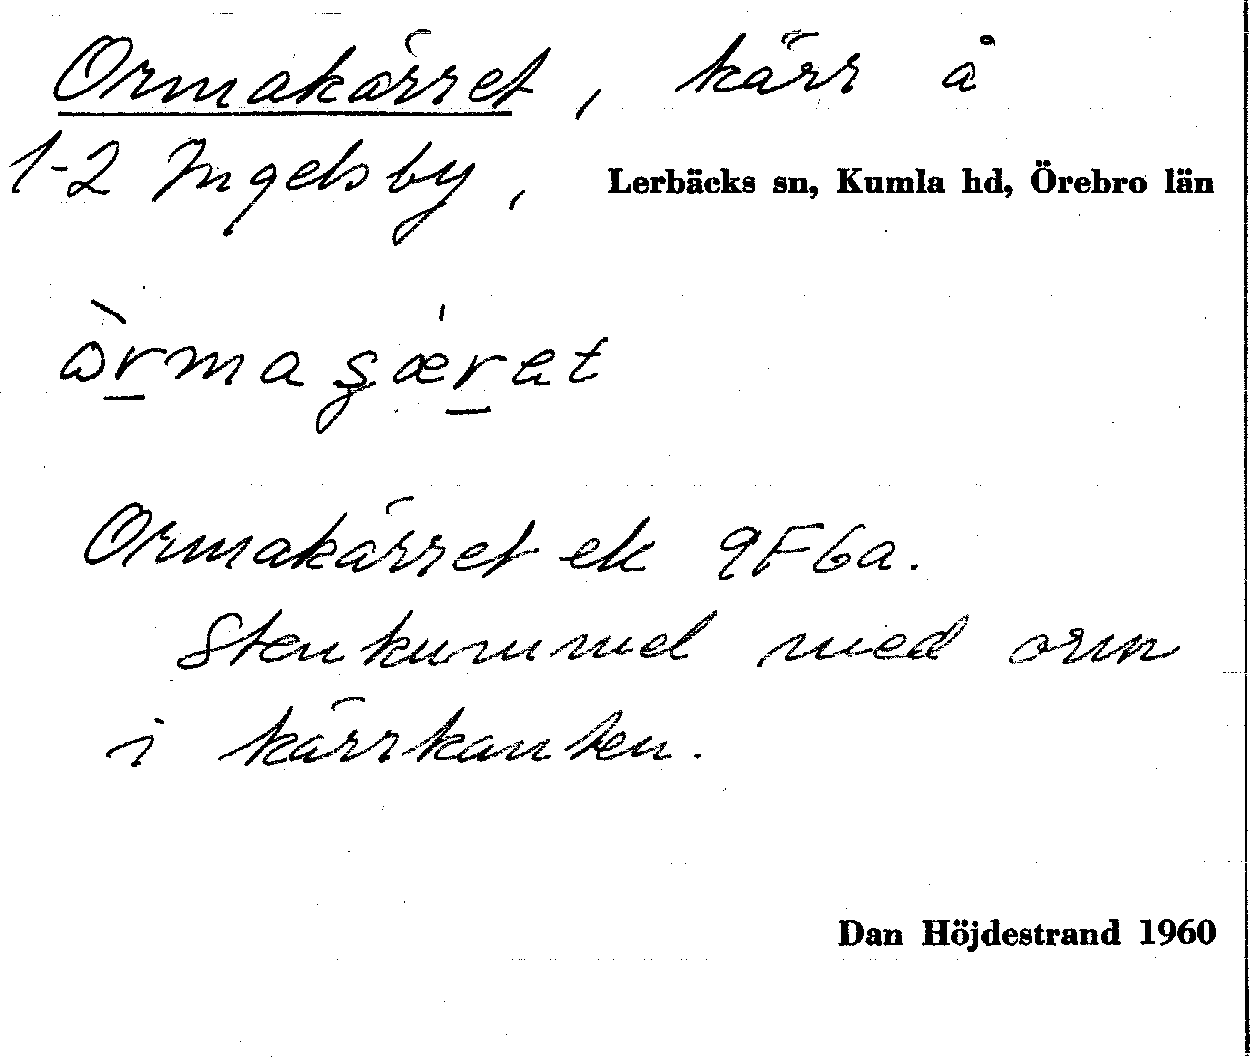 Ormakärret, kärr å
1-2 Ingelsby, Lerbäcks sn, Kumla hd, Örebro län
Ormakärret ek 9F6a.
Stenkummel med orm
i kärrkanten.
Dan Höjdestrand 1960